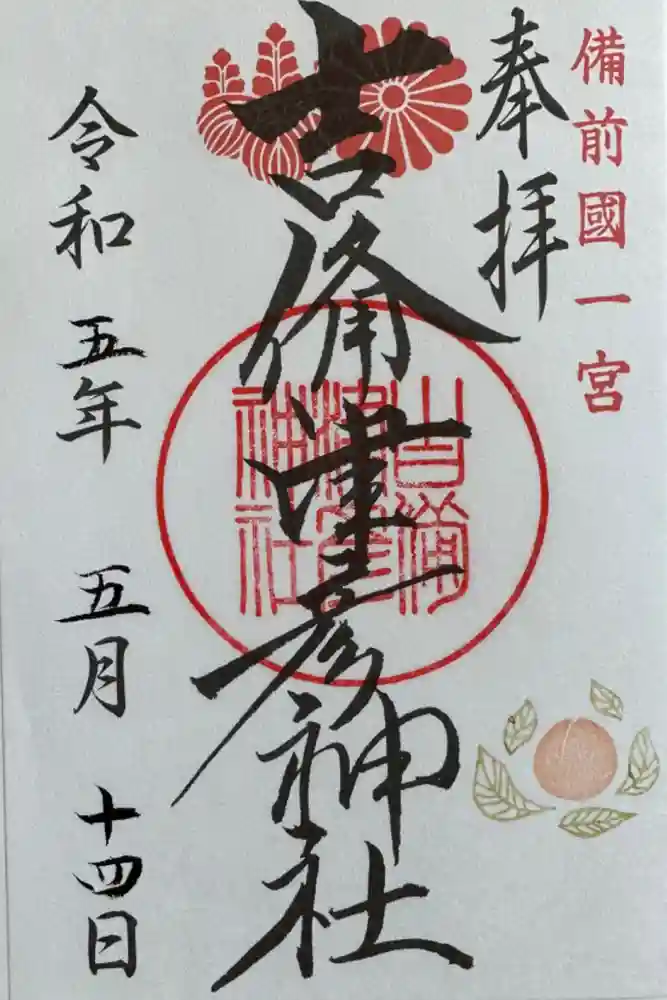 備前國一宮
奉拝
吉備津彦神社
吉備津彦神社
令和五年五月十四日